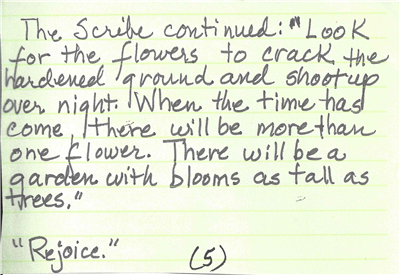 The Scribe continued: "Look
for the flowers to crack the
hardened ground and shoot up
over night. When the time has
come, there will be more than
one flower. There will be a
garden with blooms as tall as
trees."
"Rejoice."
(5)